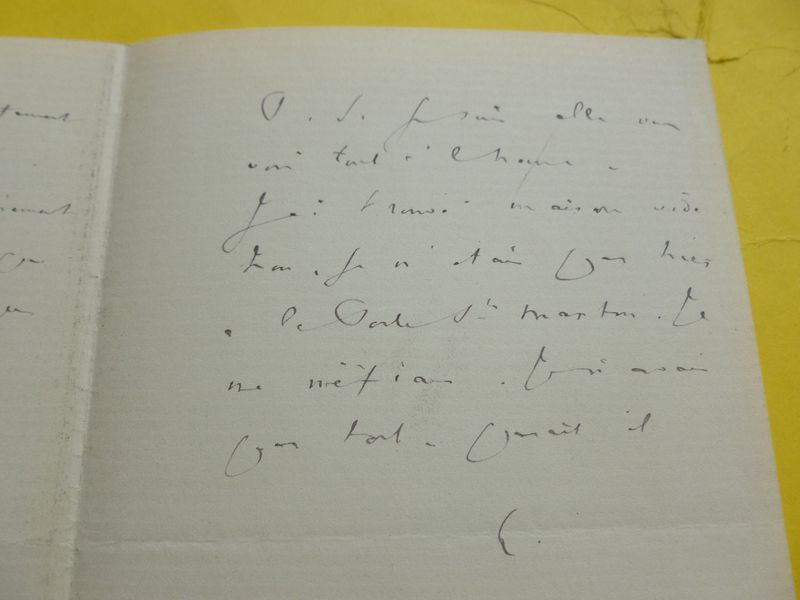 P. S. Je suis allé vous
voir tout à l'heure.
J'ai trouvé maison vide
Non, je n'étais pas hier
à la Porte St Martin. Je
me méfiais. Je n'avais
pas tort, paraît il